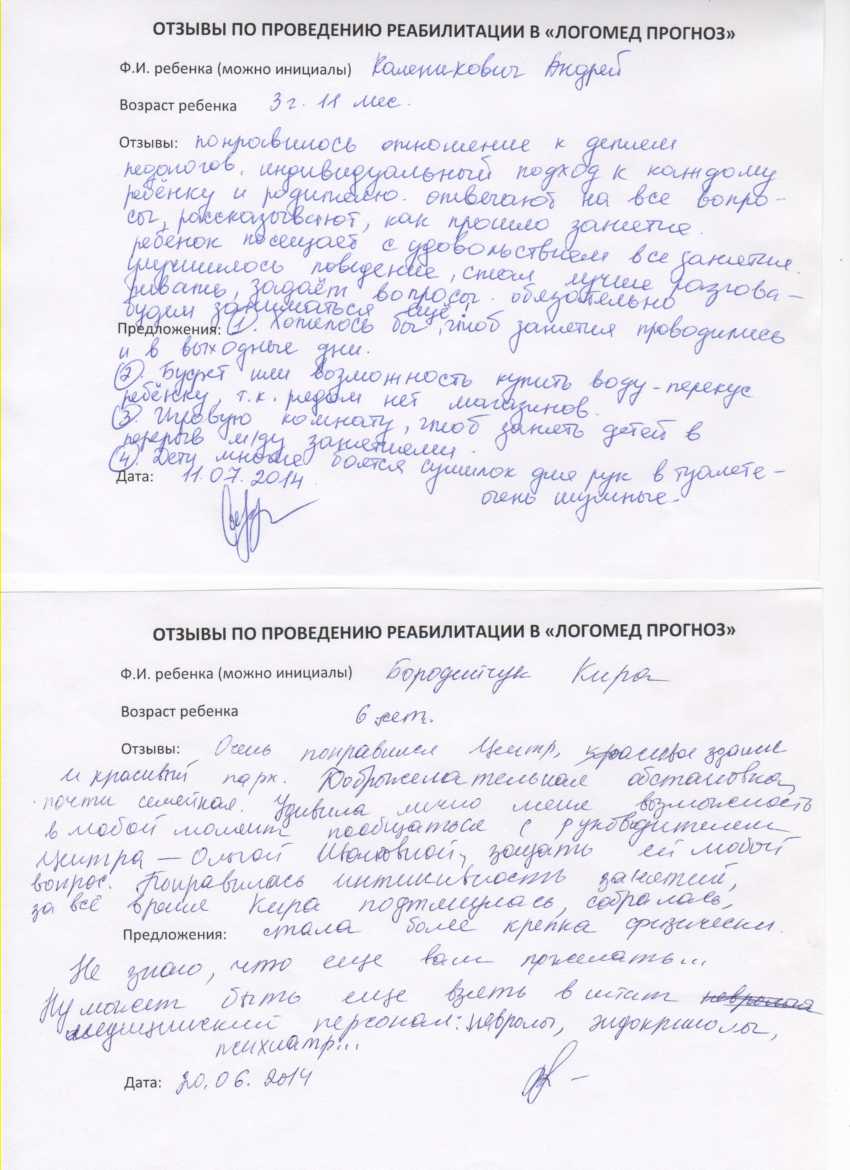 ОТЗЫВЫ ПО ПРОВЕДЕНИЮ РЕАБИЛИТАЦИИ В «ЛОГОМЕД ПРОГНОЗ»
Ф.И. ребенка (можно инициалы) Каленикович Андрей
Возраст ребенка 3 г. 11 мес.
Отзывы: понравилось отношение к детям
педагогов, индивидуальный подход к каждому
ребёнку и родителю. отвечают на все вопро-
сы, рассказывают, как прошло занятие.
ребёнок посещает с удовольствием все занятия.
улучшилось поведение, стал лучше разгова-
ривать, задаёт вопросы. обязательно
будем заниматься ещё!
Предложения: 1. Хотелось бы, чтоб занятия проводились
и в выходные дни.
2. Буфет или возможность купить воду-перекус
ребёнку, т.к. рядом нет магазинов.
3. Игровую комнату, чтоб занять детей в
перерыв м/ду занятиями.
4. Дети многие боятся сушилок для рук в туалете-
очень шумные.
Дата: 11.07.2014
ОТЗЫВЫ ПО ПРОВЕДЕНИЮ РЕАБИЛИТАЦИИ В «ЛОГОМЕД ПРОГНОЗ»
Ф.И. ребенка (можно инициалы) Бородийчук Кира
Возраст ребенка 6 лет.
Отзывы: Очень понравился Центр, красивое здание
и красивый парк. Доброжелательная обстановка,
почти семейная. Удивила лично меня возможность
в любой момент пообщаться с руководителем
центра — Ольгой Ивановной, задать ей любой
вопрос. Понравилась интенсивность занятий,
за всё время Кира подтянулась, собралась,
стала более крепка физически.
Предложения:
Не знаю, что еще вам пожелать...
Ну может быть еще взять в штат
медицинский персонал: неврологи, эндокринологи,
психиатр...
Дата: 20.06.2014